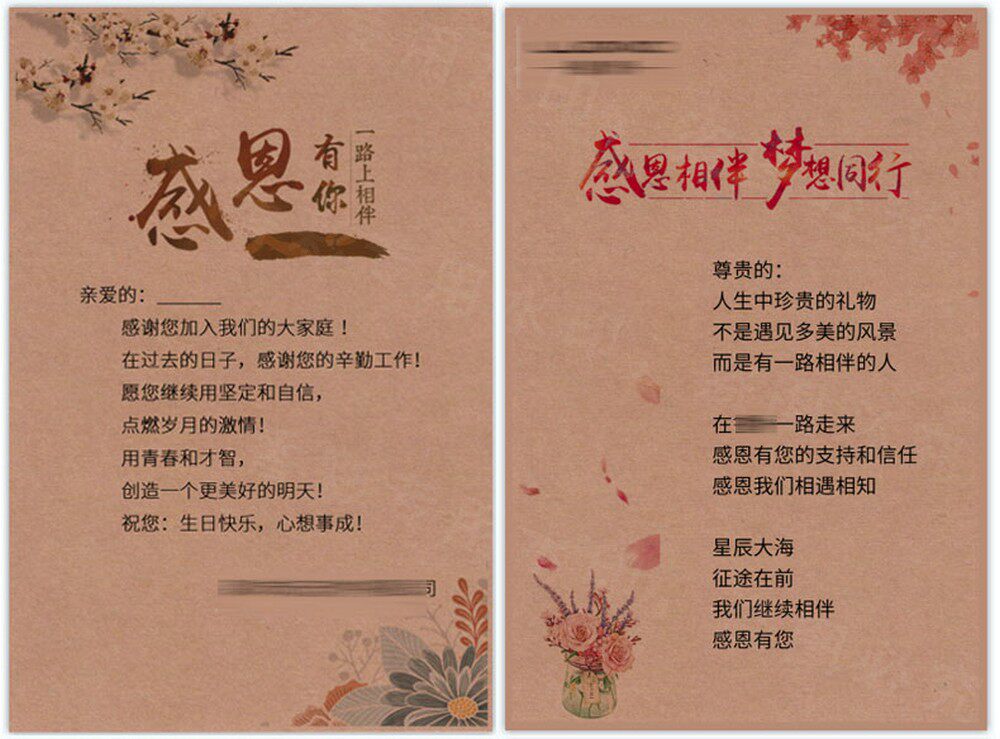 感恩
有你
一路上相伴
亲爱的：
感谢您加入我们的大家庭！
在过去的日子，感谢您的辛勤工作！
愿您继续用坚定和自信，
点燃岁月的激情！
用青春和才智，
创造一个更美好的明天！
祝您：生日快乐，心想事成！
司
感恩相伴 梦想同行
尊贵的：
人生中珍贵的礼物
不是遇见多美的风景
而是有一路相伴的人
在 一路走来
感恩有您的支持和信任
感恩我们相遇相知
星辰大海
征途在前
我们继续相伴
感恩有您